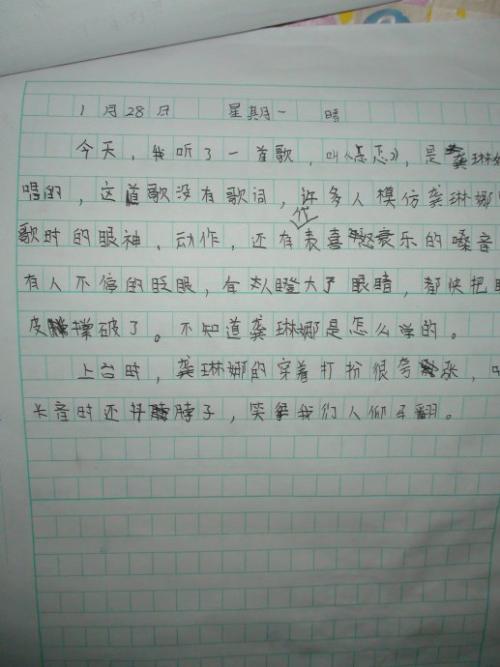 1月28日 星期一 晴
今天,我听了一首歌,叫《忐忑》,是龚琳娜
唱的,这首歌没有歌词,许多人模仿龚琳娜
歌时的眼神,动作,还有代表喜怒哀乐的嗓音
有人不停的眨眼,有人瞪大了眼睛,都快把眼
皮撑破了。不知道龚琳娜是怎么学的。
上台时,龚琳娜的穿着打扮很夸张,
长音时还抖脖子,笑得我们人仰马翻。